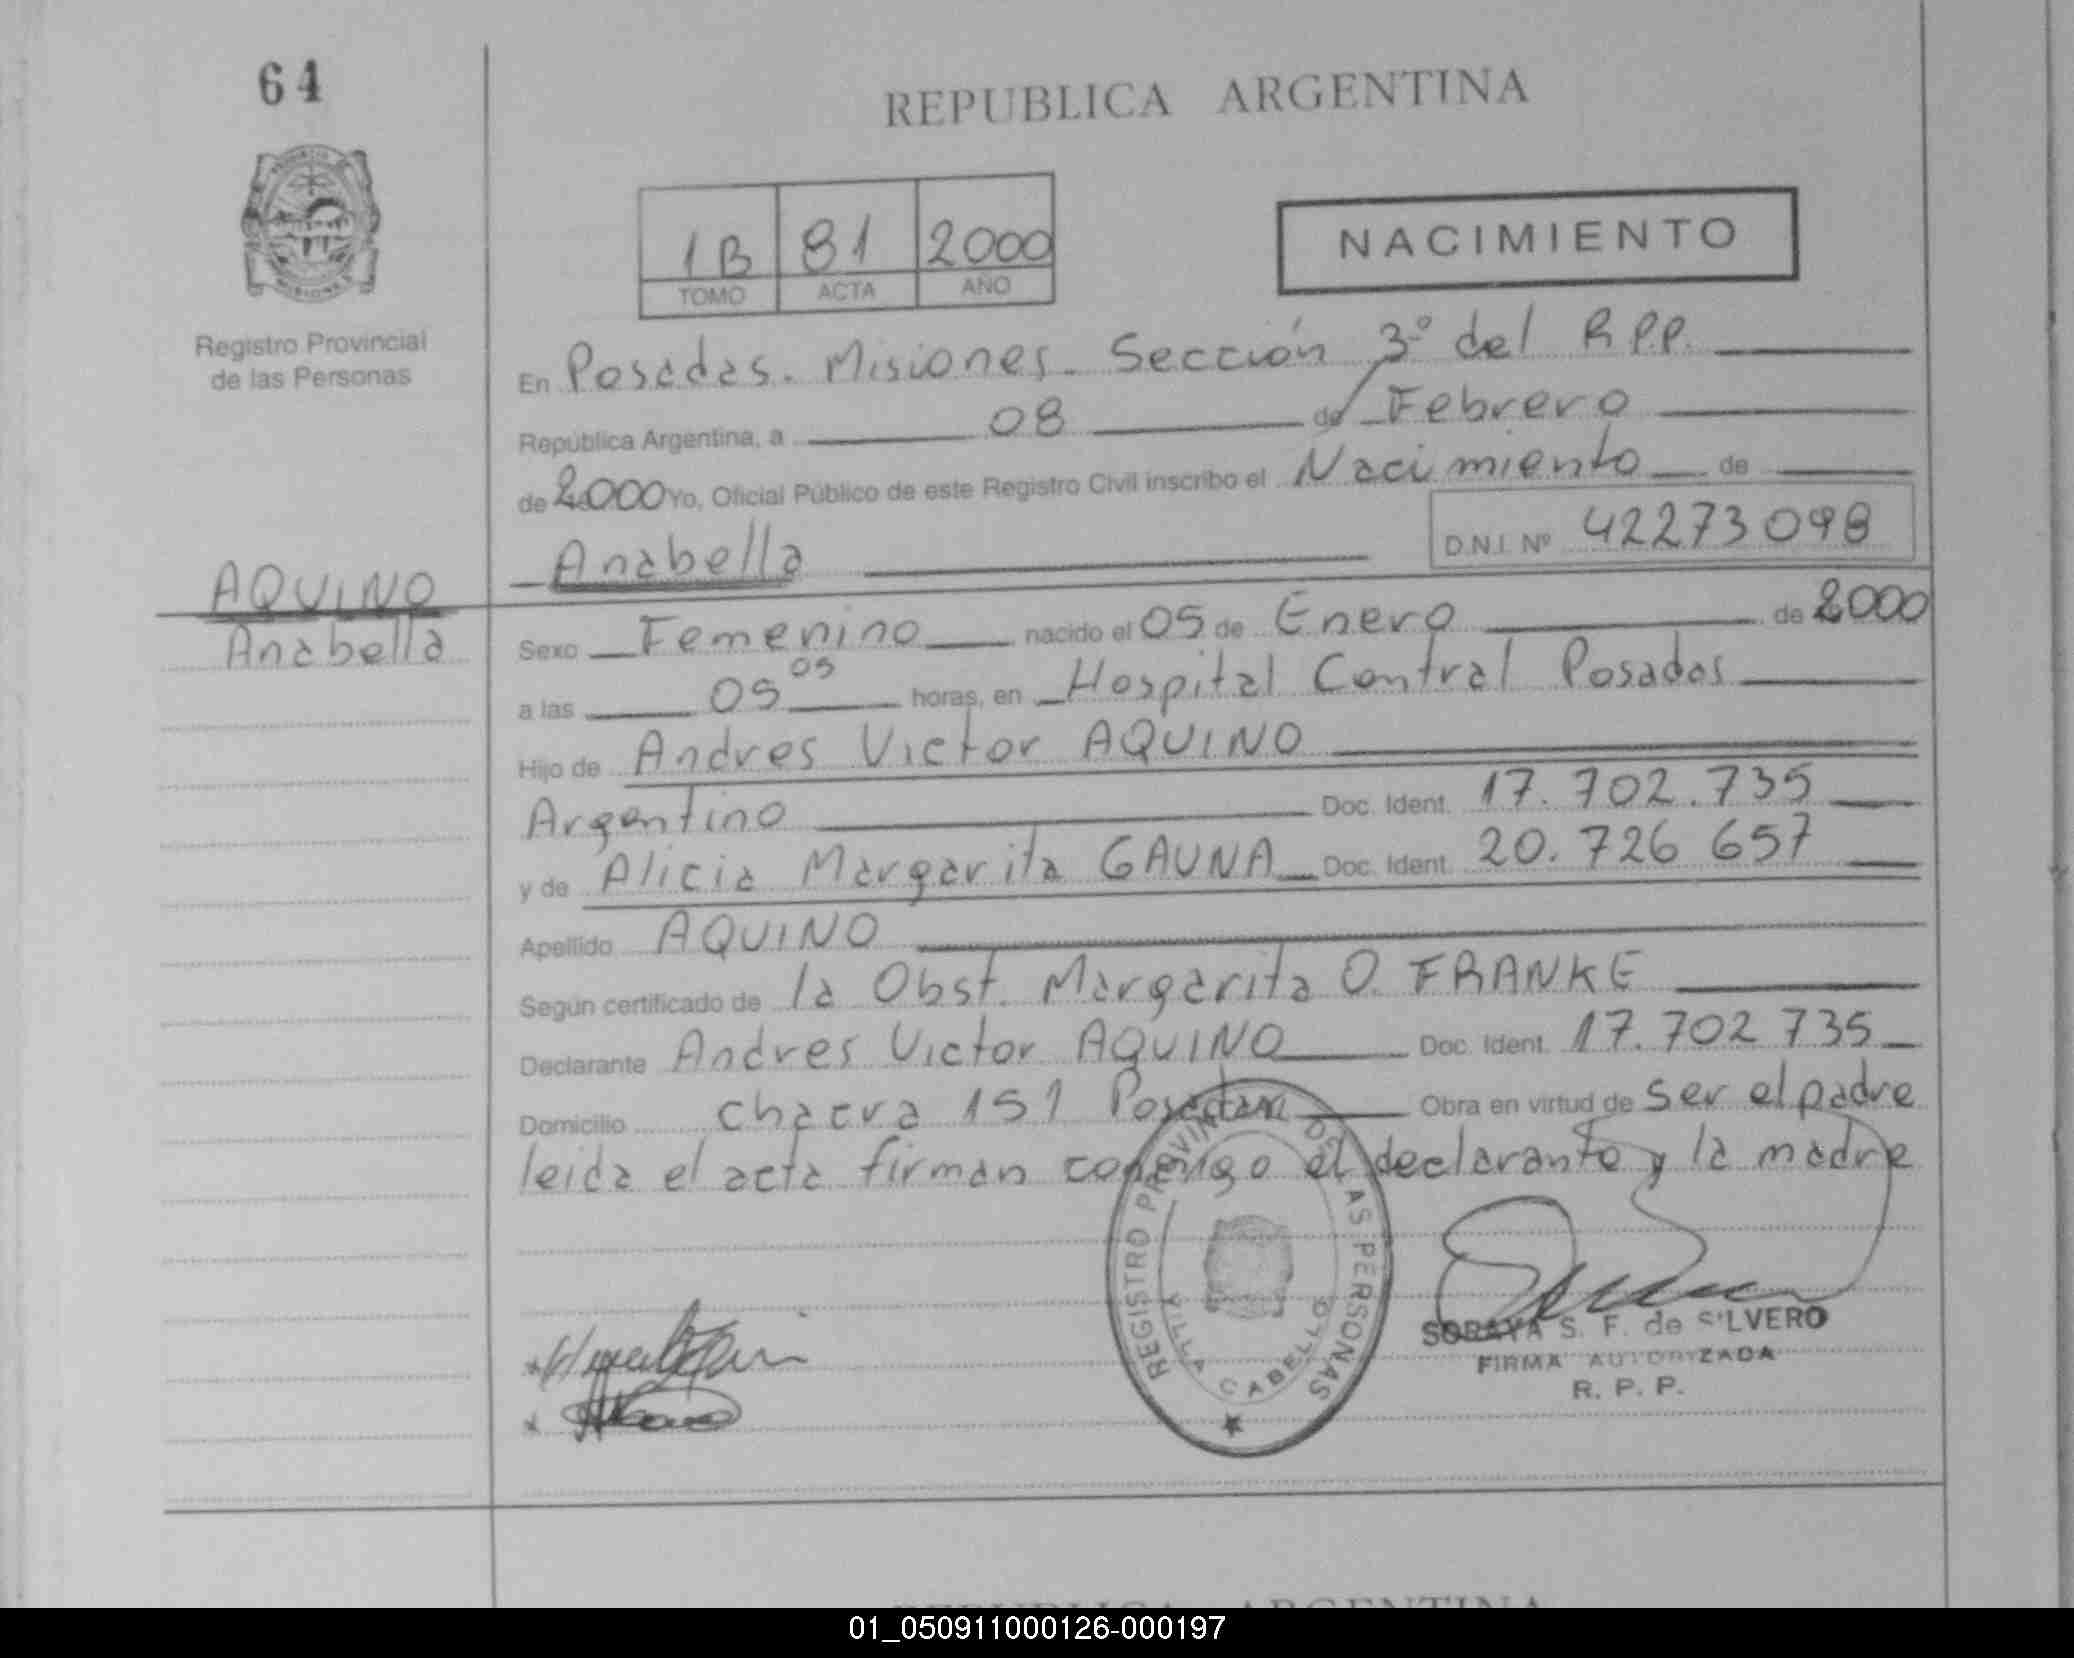 64
REPUBLICA ARGENTINA
1B 81 2000
TOMO ACTA AÑO
NACIMIENTO
Registro Provincial
de las Personas
En Posadas. Misiones. Sección 3º del R.P.P.
República Argentina, a 08 de Febrero
de 2000 Yo, Oficial Público de este Registro Civil inscribo el Nacimiento de
Anabella D.N.I. Nº 42273098
AQUINO
Anabella
Sexo Femenino nacido el 05 de Enero de 2000
a las 05 05 horas, en Hospital Central Posadas
Hijo de Andres Victor AQUINO
Argentino Doc. Ident. 17.702.735
y de Alicia Margarita GAUNA Doc. Ident. 20.726 657
Apellido AQUINO
Según certificado de la Obst. Margarita O. FRANKE
Declarante Andres Victor AQUINO Doc. Ident. 17.702 735
Domicilio chacra 151 Posadas Obra en virtud de ser el padre
leida el acta firman conmigo el declarante y la madre
REGISTRO PROVINCIAL DE LAS PERSONAS
VILLA CABELLO
SORAYA S. F. de SILVERO
FIRMA AUTORIZADA
R. P. P.
REPUBLICA ARGENTINA
01_050911000126-000197